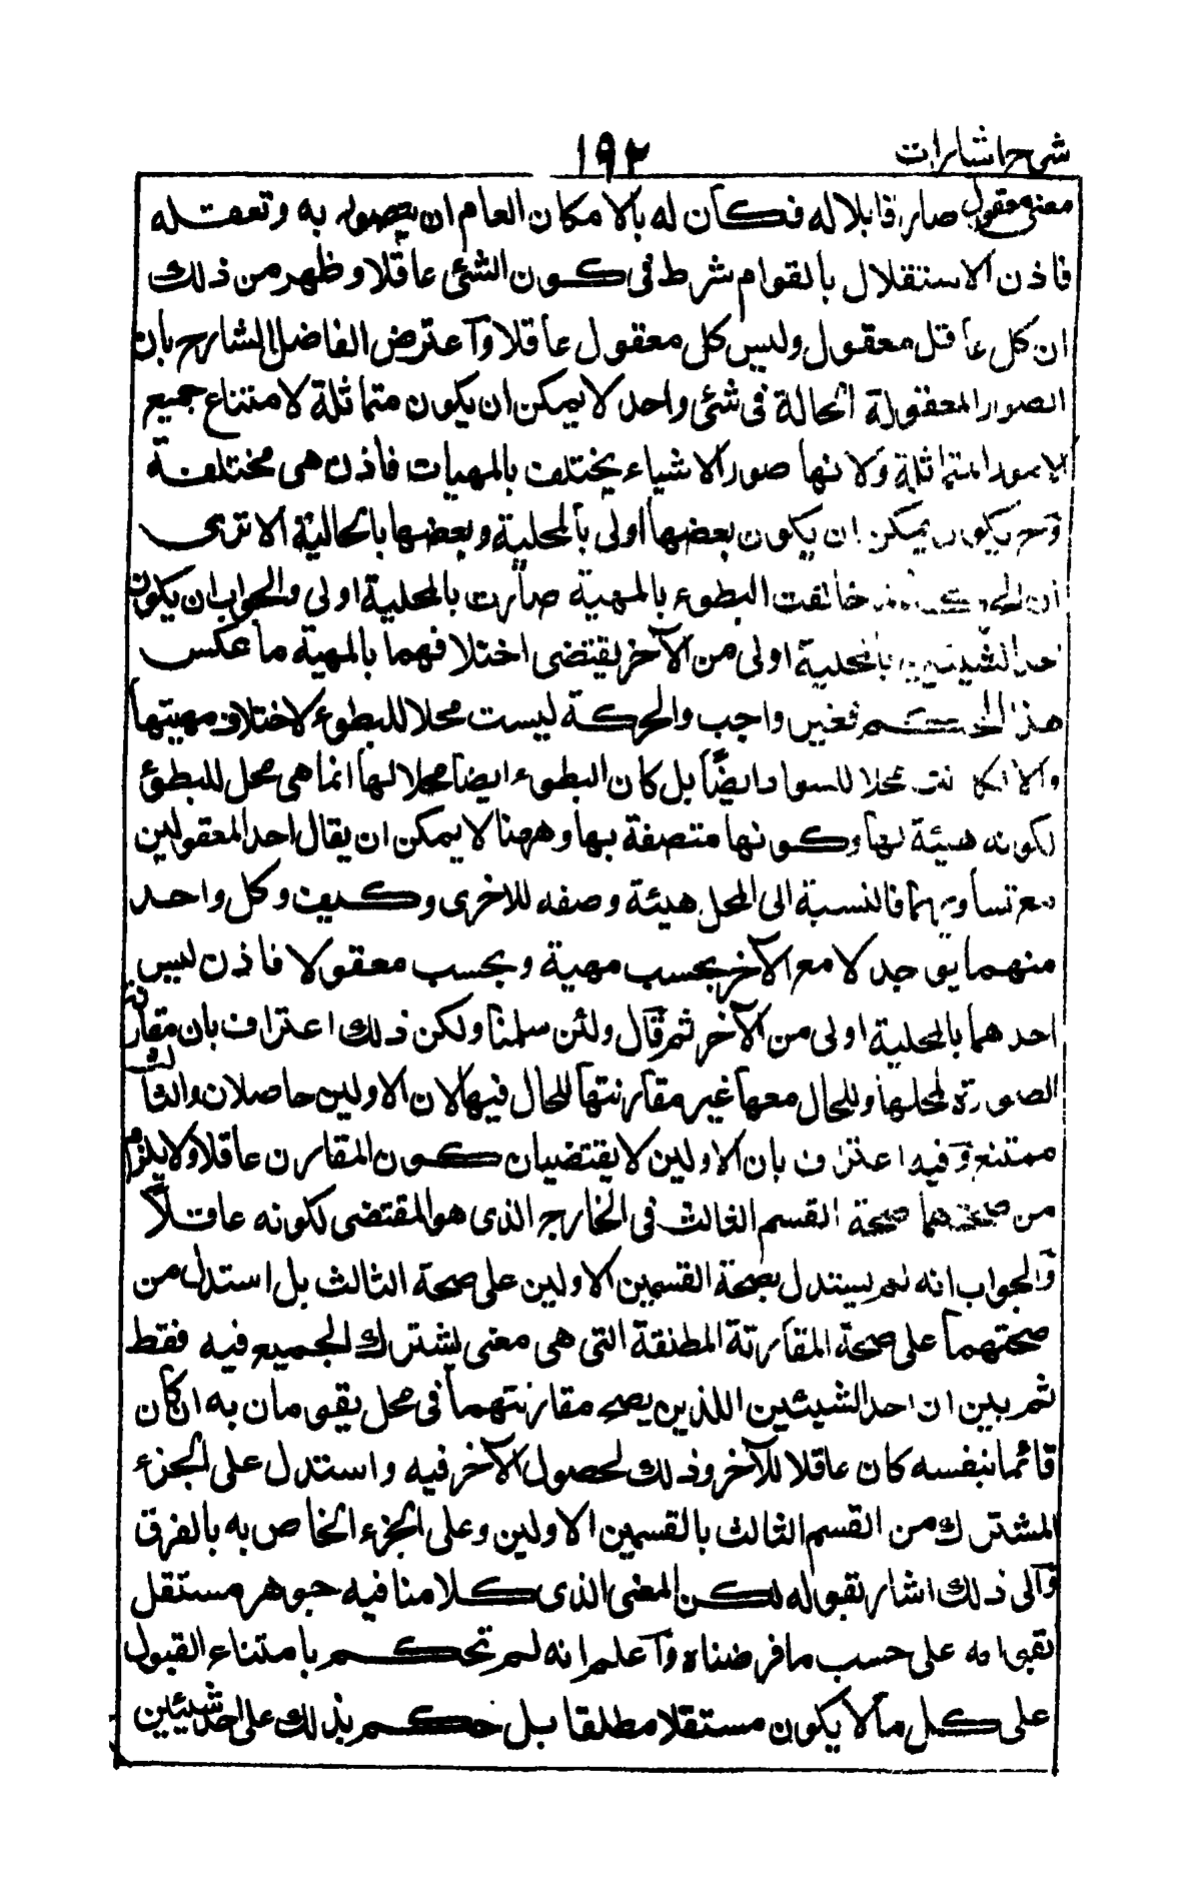 شرح اشارات
١٩٢
معنى معقول صار قابلا له فكان له بالامكان العام ان يتصور به وتعقله
فاذن الاستقلال بالقوام شرط فى كون الشئ عاقلا وظهر من ذلك
ان كل عاقل معقول وليس كل معقول عاقلا واعترض الفاضل الشارح بان
الصور المعقولة الحالة فى شئ واحد لا يمكن ان يكون متماثلة لامتناع جميع
الامور المتماثلة ولانها صور الاشياء يختلف بالمهيات فاذن هى مختلفة
وح يكون يمكن ان يكون بعضها اولى بالمحلية وبعضها بالحالية الا ترى
ان الحركة خالفت البطوء بالمهية صارت بالمحلية اولى والجواب ان يكون
احد الشيئين بالمحلية اولى من الآخر يقتضى اختلافهما بالمهية ما عكس
هذا الحكم فغير واجب والحركة ليست محلا للبطوء لاختلاف مهيتها
والا لكانت محلا للسواد ايضا بل كان البطوء ايضا محلا لها انما هى محل للبطوء
لكونه هيئة لها وكونها متصفة بها وههنا لا يمكن ان يقال احد المعقولين
مع تساويهما فالنسبة الى المحل هيئة وصفه للاخرى وكيف وكل واحد
منهما يوجد لا مع الآخر بحسب مهية وبحسب معقولا فاذن ليس
احدهما بالمحلية اولى من الآخر ثم قال ولئن سلمنا ولكن ذلك اعتراف بان مقارنة
الصورة لمحلها وللحال معها غير مقارنتها للحال فيها لان الاولين حاصلان والثالث
ممتنع وفيه اعتراف بان الاولين لا يقتضيان كون المقارن عاقلا ولا يلزم
من صحتهما صحة القسم الثالث فى الخارج الذى هو المقتضى لكونه عاقلا
والجواب انه لم يستدل بصحة القسمين الاولين على صحة الثالث بل استدل من
صحتهما على صحة المقارنة المطلقة التى هى معنى يشترك الجميع فيه فقط
ثم بين ان احد الشيئين اللذين يصح مقارنتهما فى محل يقومان به ان كان
قائما بنفسه كان عاقلا للآخر وذلك لحصول الآخر فيه واستدل على الجزء
المشترك من القسم الثالث بالقسمين الاولين وعلى الجزء الخاص به بالفرق
والى ذلك اشار بقوله لكن المعنى الذى كلامنا فيه جوهر مستقل
بقوامه على حسب ما فرضناه واعلم انه لم تحكم بامتناع القبول
على كل ما لا يكون مستقلا مطلقا بل حكم بذلك على احد شيئين